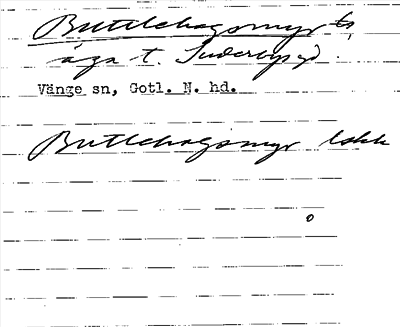 Buttlehagsmyr ts,
äga t. Suderbys gd.
Vänge sn, Gotl. N. hd.
Buttlehagsmyr Eskk